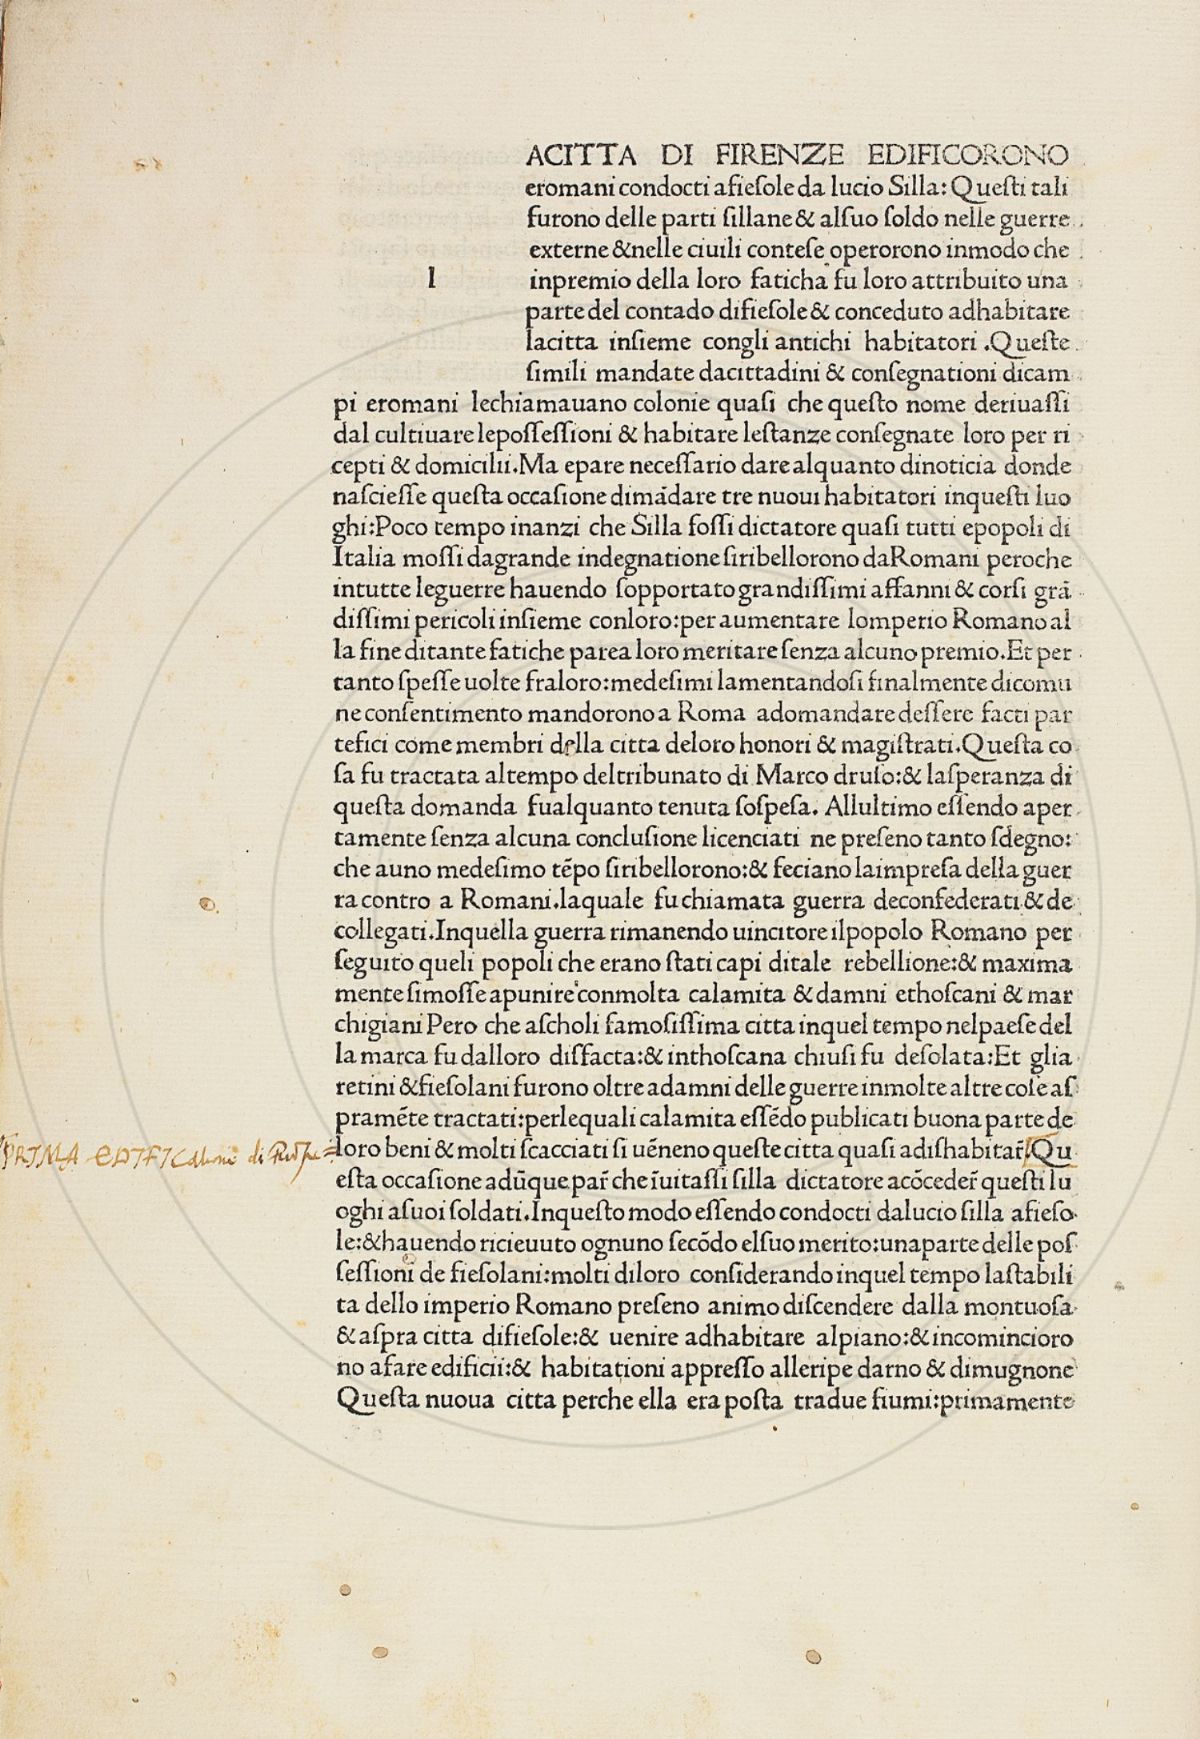 ACITTA DI FIRENZE EDIFICORONO
eromani condocti afieſole da lucio Silla: Queſti tali
furono delle parti ſillane & alſuo ſoldo nelle guerre
externe &nelle ciuili conteſe operorono inmodo che
l
inpremio della loro faticha fu loro attribuito una
parte del contado difieſole & conceduto adhabitare
lacitta inſieme congli antichi habitatori .Queſte
ſimili mandate dacittadini & conſegnationi dicam
pi eromani lechiamauano colonie quaſi che queſto nome deriuaſſi
dal cultiuare lepoſſeſſioni & habitare leſtanze conſegnate loro per ri
cepti & domicilii.Ma epare neceſſario dare alquanto dinoticia donde
naſcieſſe queſta occaſione dimādare tre nuoui habitatori inqueſti luo
ghi:Poco tempo inanzi che Silla foſſi dictatore quaſi tutti epopoli di
Italia moſſi dagrande indegnatione ſiribellorono daRomani peroche
intutte leguerre hauendo ſopportato grandiſſimi affanni & corſi grā
diſſimi pericoli inſieme conloro:per aumentare lomperio Romano al
la fine ditante fatiche parea loro meritare ſenza alcuno premio.Et per
tanto ſpeſſe uolte fraloro:medeſimi lamentandoſi finalmente dicomu
ne conſentimento mandorono a Roma adomandare deſſere facti par
tefici come membri della citta deloro honori & magiſtrati.Queſta co
ſa fu tractata altempo deltribunato di Marco druſo:& laſperanza di
queſta domanda fualquanto tenuta ſoſpeſa. Allultimo eſſendo aper
tamente ſenza alcuna concluſione licenciati ne preſeno tanto ſdegno:
che auno medeſimo tēpo ſiribellorono:& feciano laimpreſa della guer
ra contro a Romani.laquale fu chiamata guerra deconfederati & de
collegati.Inquella guerra rimanendo uincitore ilpopolo Romano per
ſeguito queli popoli che erano ſtati capi ditale rebellione:& maxima
mente ſimoſſe apunire conmolta calamita & damni ethoſcani & mar
chigiani Pero che aſcholi famoſiſſima citta inquel tempo nelpaeſe del
la marca fu dalloro diſfacta:& inthoſcana chiuſi fu deſolata:Et glia
retini &fieſolani furono oltre adamni delle guerre inmolte altre coſe aſ
pramēte tractati:perlequali calamita eſſēdo publicati buona parte de
loro beni & molti ſcacciati ſi uēneno queſte citta quaſi adiſhabitar̃.Qu
PRIMA EDIFICatione di
eſta occaſione adūque par̃ che īuitaſſi ſilla dictatore acōceder̃ queſti lu
oghi aſuoi ſoldati.Inqueſto modo eſſendo condocti dalucio ſilla afieſo
le:&hauendo ricieuuto ognuno ſecōdo elſuo merito:una parte delle poſ
ſeſſioni de fieſolani:molti diloro conſiderando inquel tempo laſtabili
ta dello imperio Romano preſeno animo diſcendere dalla montuoſa
& aſpra citta difieſole:& uenire adhabitare alpiano:& incomincioro
no afare edificii:& habitationi appreſſo alleripe darno & dimugnone
Queſta nuoua citta perche ella era poſta tradue fiumi:primamente